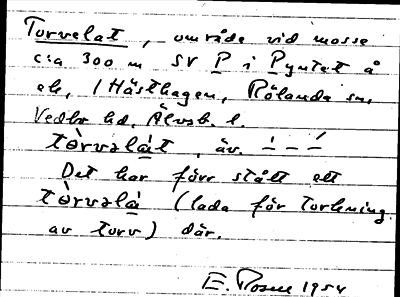 Torvelat, område vid mosse
c:a 300 m SV P i Pyntet å
ek, i Hästhagen, Rölanda sn,
Vedbo hd, Älvsb. l.
tòrvəlát, äv. – – –́
Det har förr stått ett
tòrvəlá (lada för torkning
av torv) där.
E. Rosell 1954